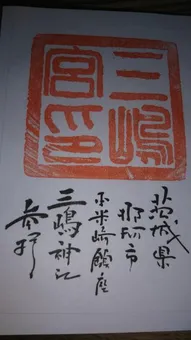 三嶋
宮印
茨城県
那珂市
本米崎鎮座
三嶋神社
参拝